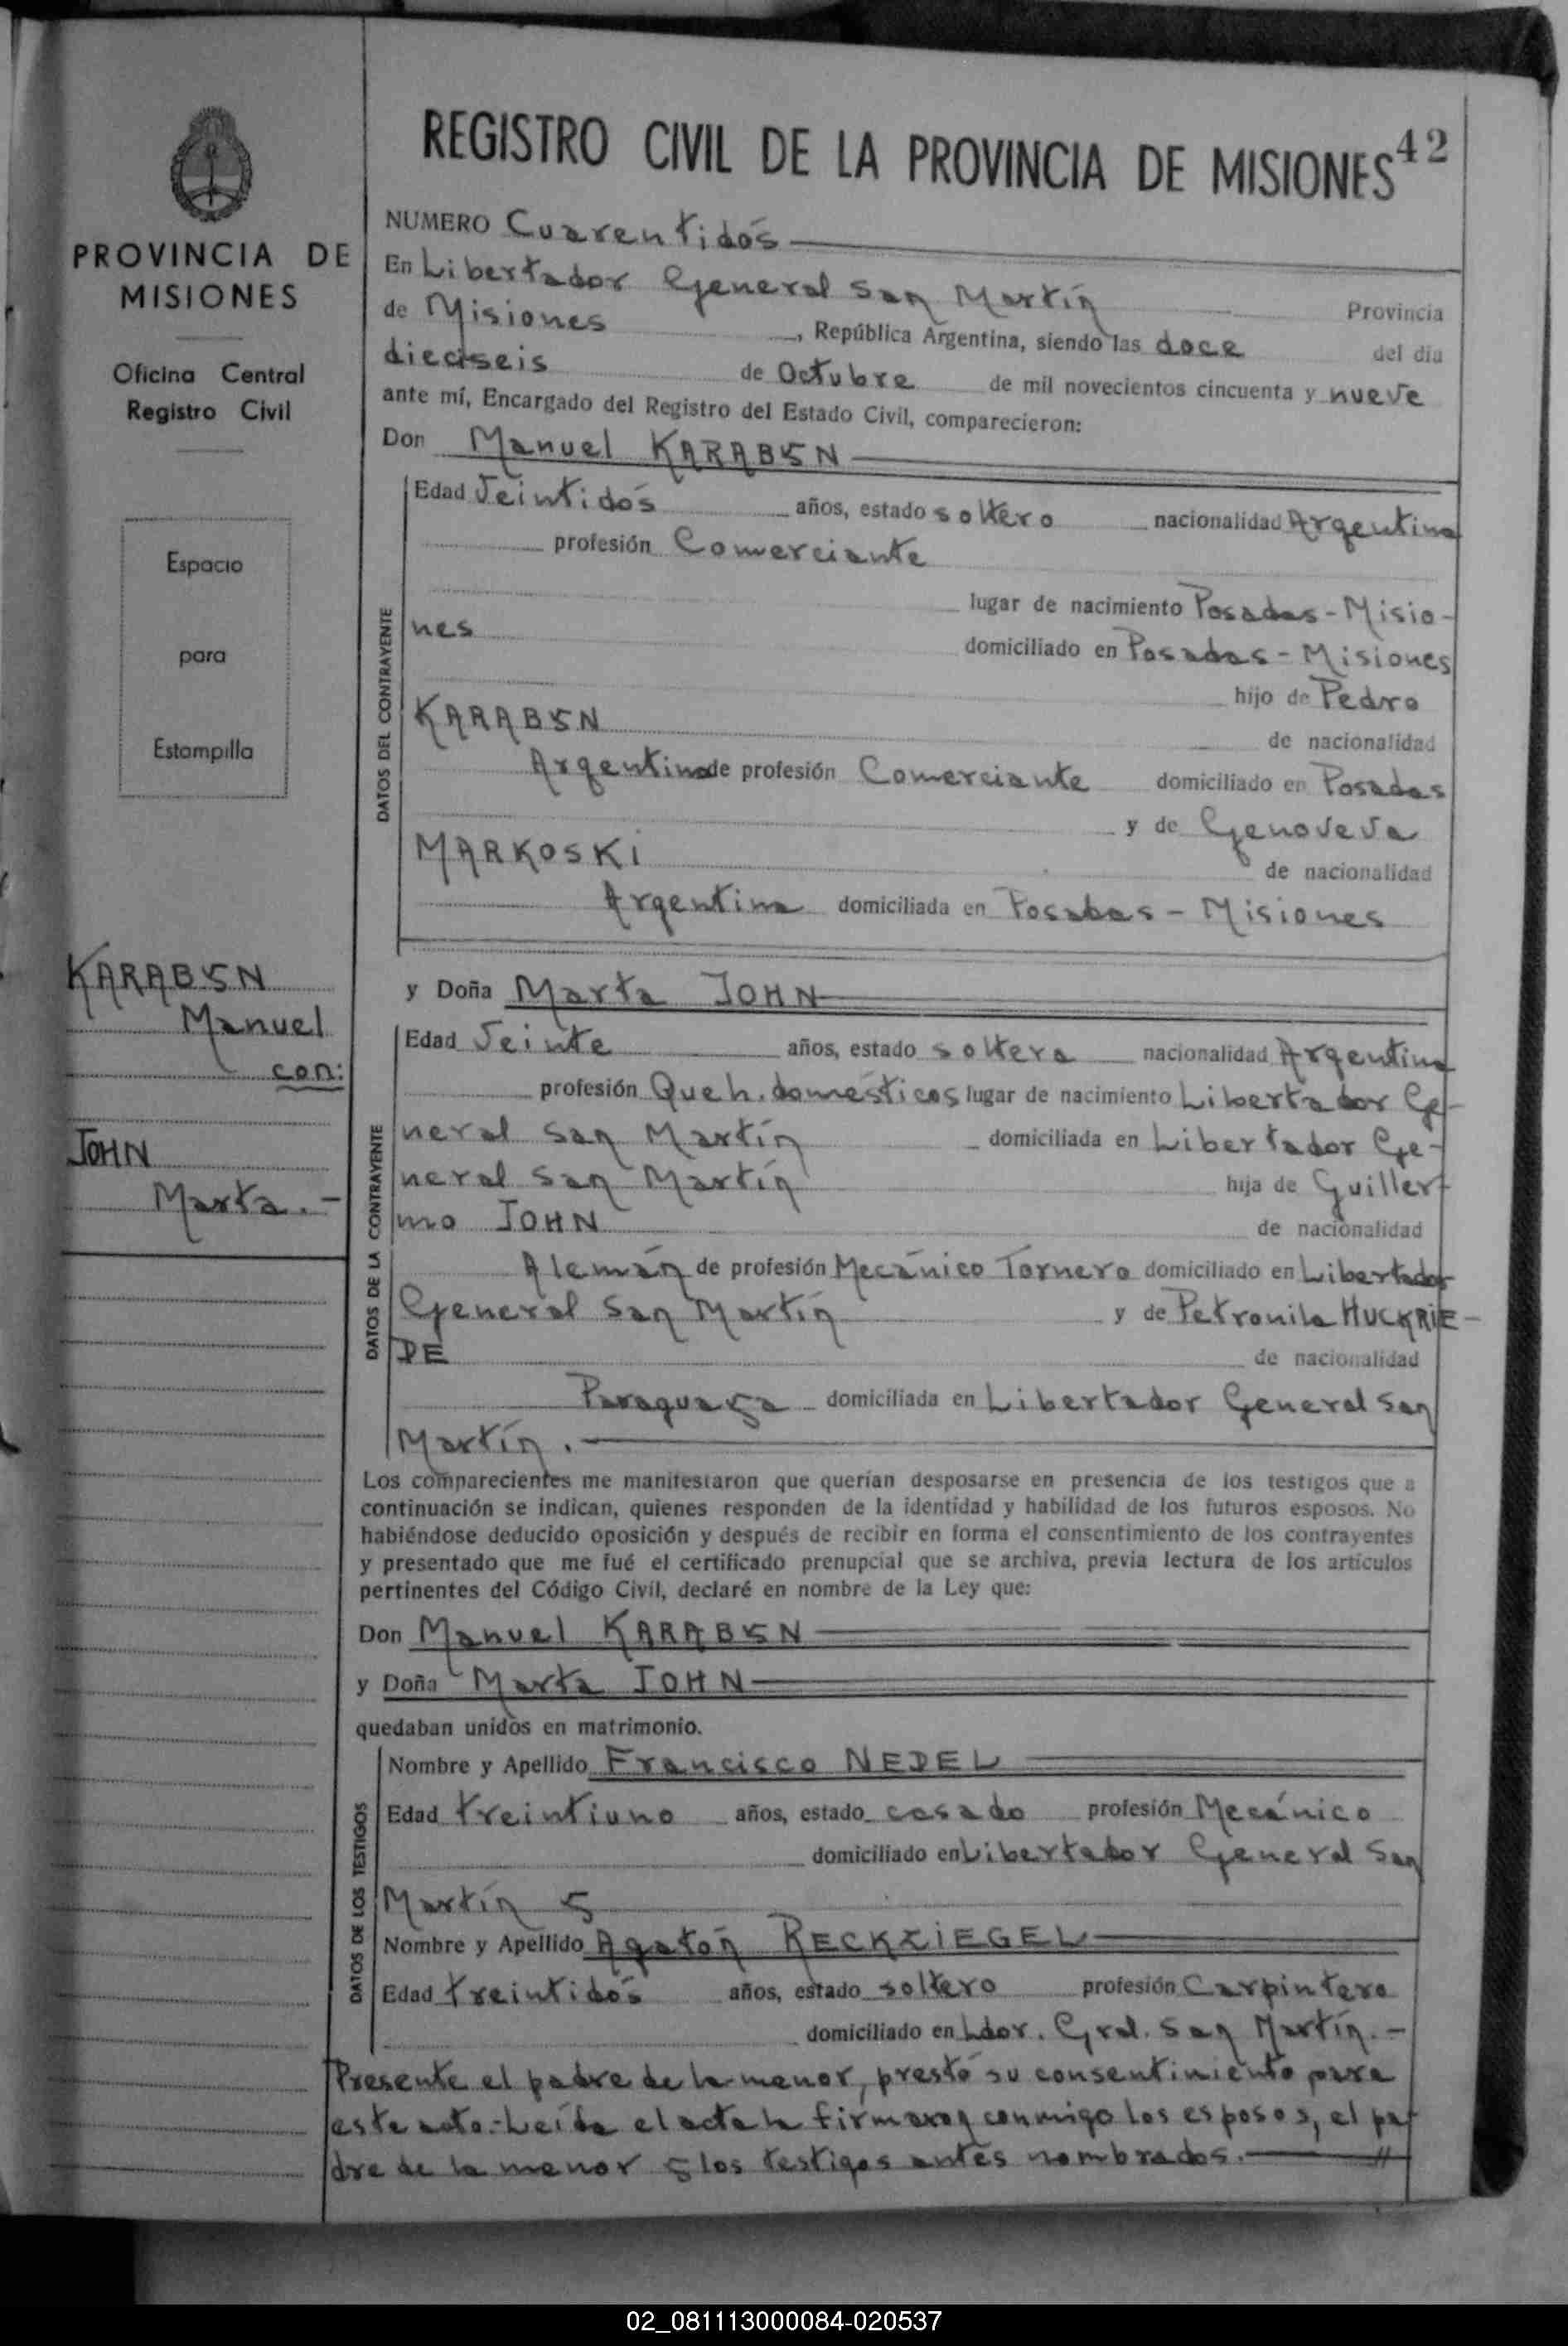 PROVINCIA DE
MISIONES
Oficina Central
Registro Civil
Espacio
para
Estampilla
KARABYN
Manuel
con:
JOHN
Marta.-
REGISTRO CIVIL DE LA PROVINCIA DE MISIONES 42
NUMERO Cuarentidós
En Libertador General San Martín Provincia
de Misiones, República Argentina, siendo las doce del día
dieciseis de Octubre de mil novecientos cincuenta y nueve
ante mí, Encargado del Registro del Estado Civil, comparecieron:
Don Manuel KARABYN
DATOS DEL CONTRAYENTE
Edad Veintidós años, estado soltero nacionalidad Argentina
profesión Comerciante
lugar de nacimiento Posadas-Misio-
nes domiciliado en Posadas-Misiones
hijo de Pedro
KARABYN de nacionalidad
Argentina de profesión Comerciante domiciliado en Posadas
y de Genoveva
MARKOSKI de nacionalidad
Argentina domiciliada en Posadas-Misiones
y Doña Marta JOHN
DATOS DE LA CONTRAYENTE
Edad Veinte años, estado soltera nacionalidad Argentina
profesión Queh. domésticos lugar de nacimiento Libertador Ge-
neral San Martín domiciliada en Libertador Ge-
neral San Martín hija de Guiller-
mo JOHN de nacionalidad
Alemán de profesión Mecánico Tornero domiciliado en Libertador
General San Martín y de Petronila HUCKRIE-
DE de nacionalidad
Paraguaya domiciliada en Libertador General San
Martín.
Los comparecientes me manifestaron que querían desposarse en presencia de los testigos que a
continuación se indican, quienes responden de la identidad y habilidad de los futuros esposos. No
habiéndose deducido oposición y después de recibir en forma el consentimiento de los contrayentes
y presentado que me fué el certificado prenupcial que se archiva, previa lectura de los artículos
pertinentes del Código Civil, declaré en nombre de la Ley que:
Don Manuel KARABYN
y Doña Marta JOHN
quedaban unidos en matrimonio.
DATOS DE LOS TESTIGOS
Nombre y Apellido Francisco NEDEL
Edad treintiuno años, estado casado profesión Mecánico
domiciliado en Libertador General San
Martín y
Nombre y Apellido Agatón RECKZIEGEL
Edad treintidós años, estado soltero profesión Carpintero
domiciliado en Ldor. Gral. San Martín.-
Presente el padre de la menor, prestó su consentimiento para
este acto.-Leída el acta la firmaron conmigo los esposos, el pa-
dre de la menor y los testigos antes nombrados.
02_081113000084-020537